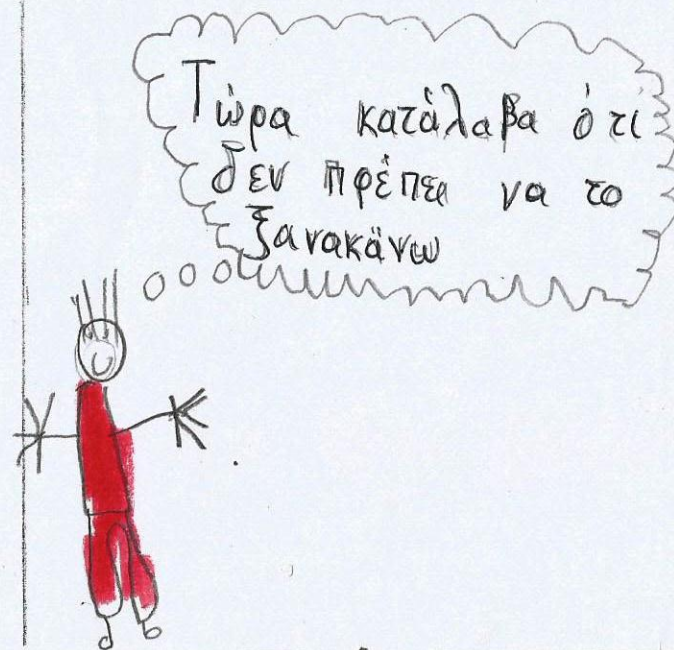 Τώρα κατάλαβα ότι
δεν πρέπει να το
ξανακάνω